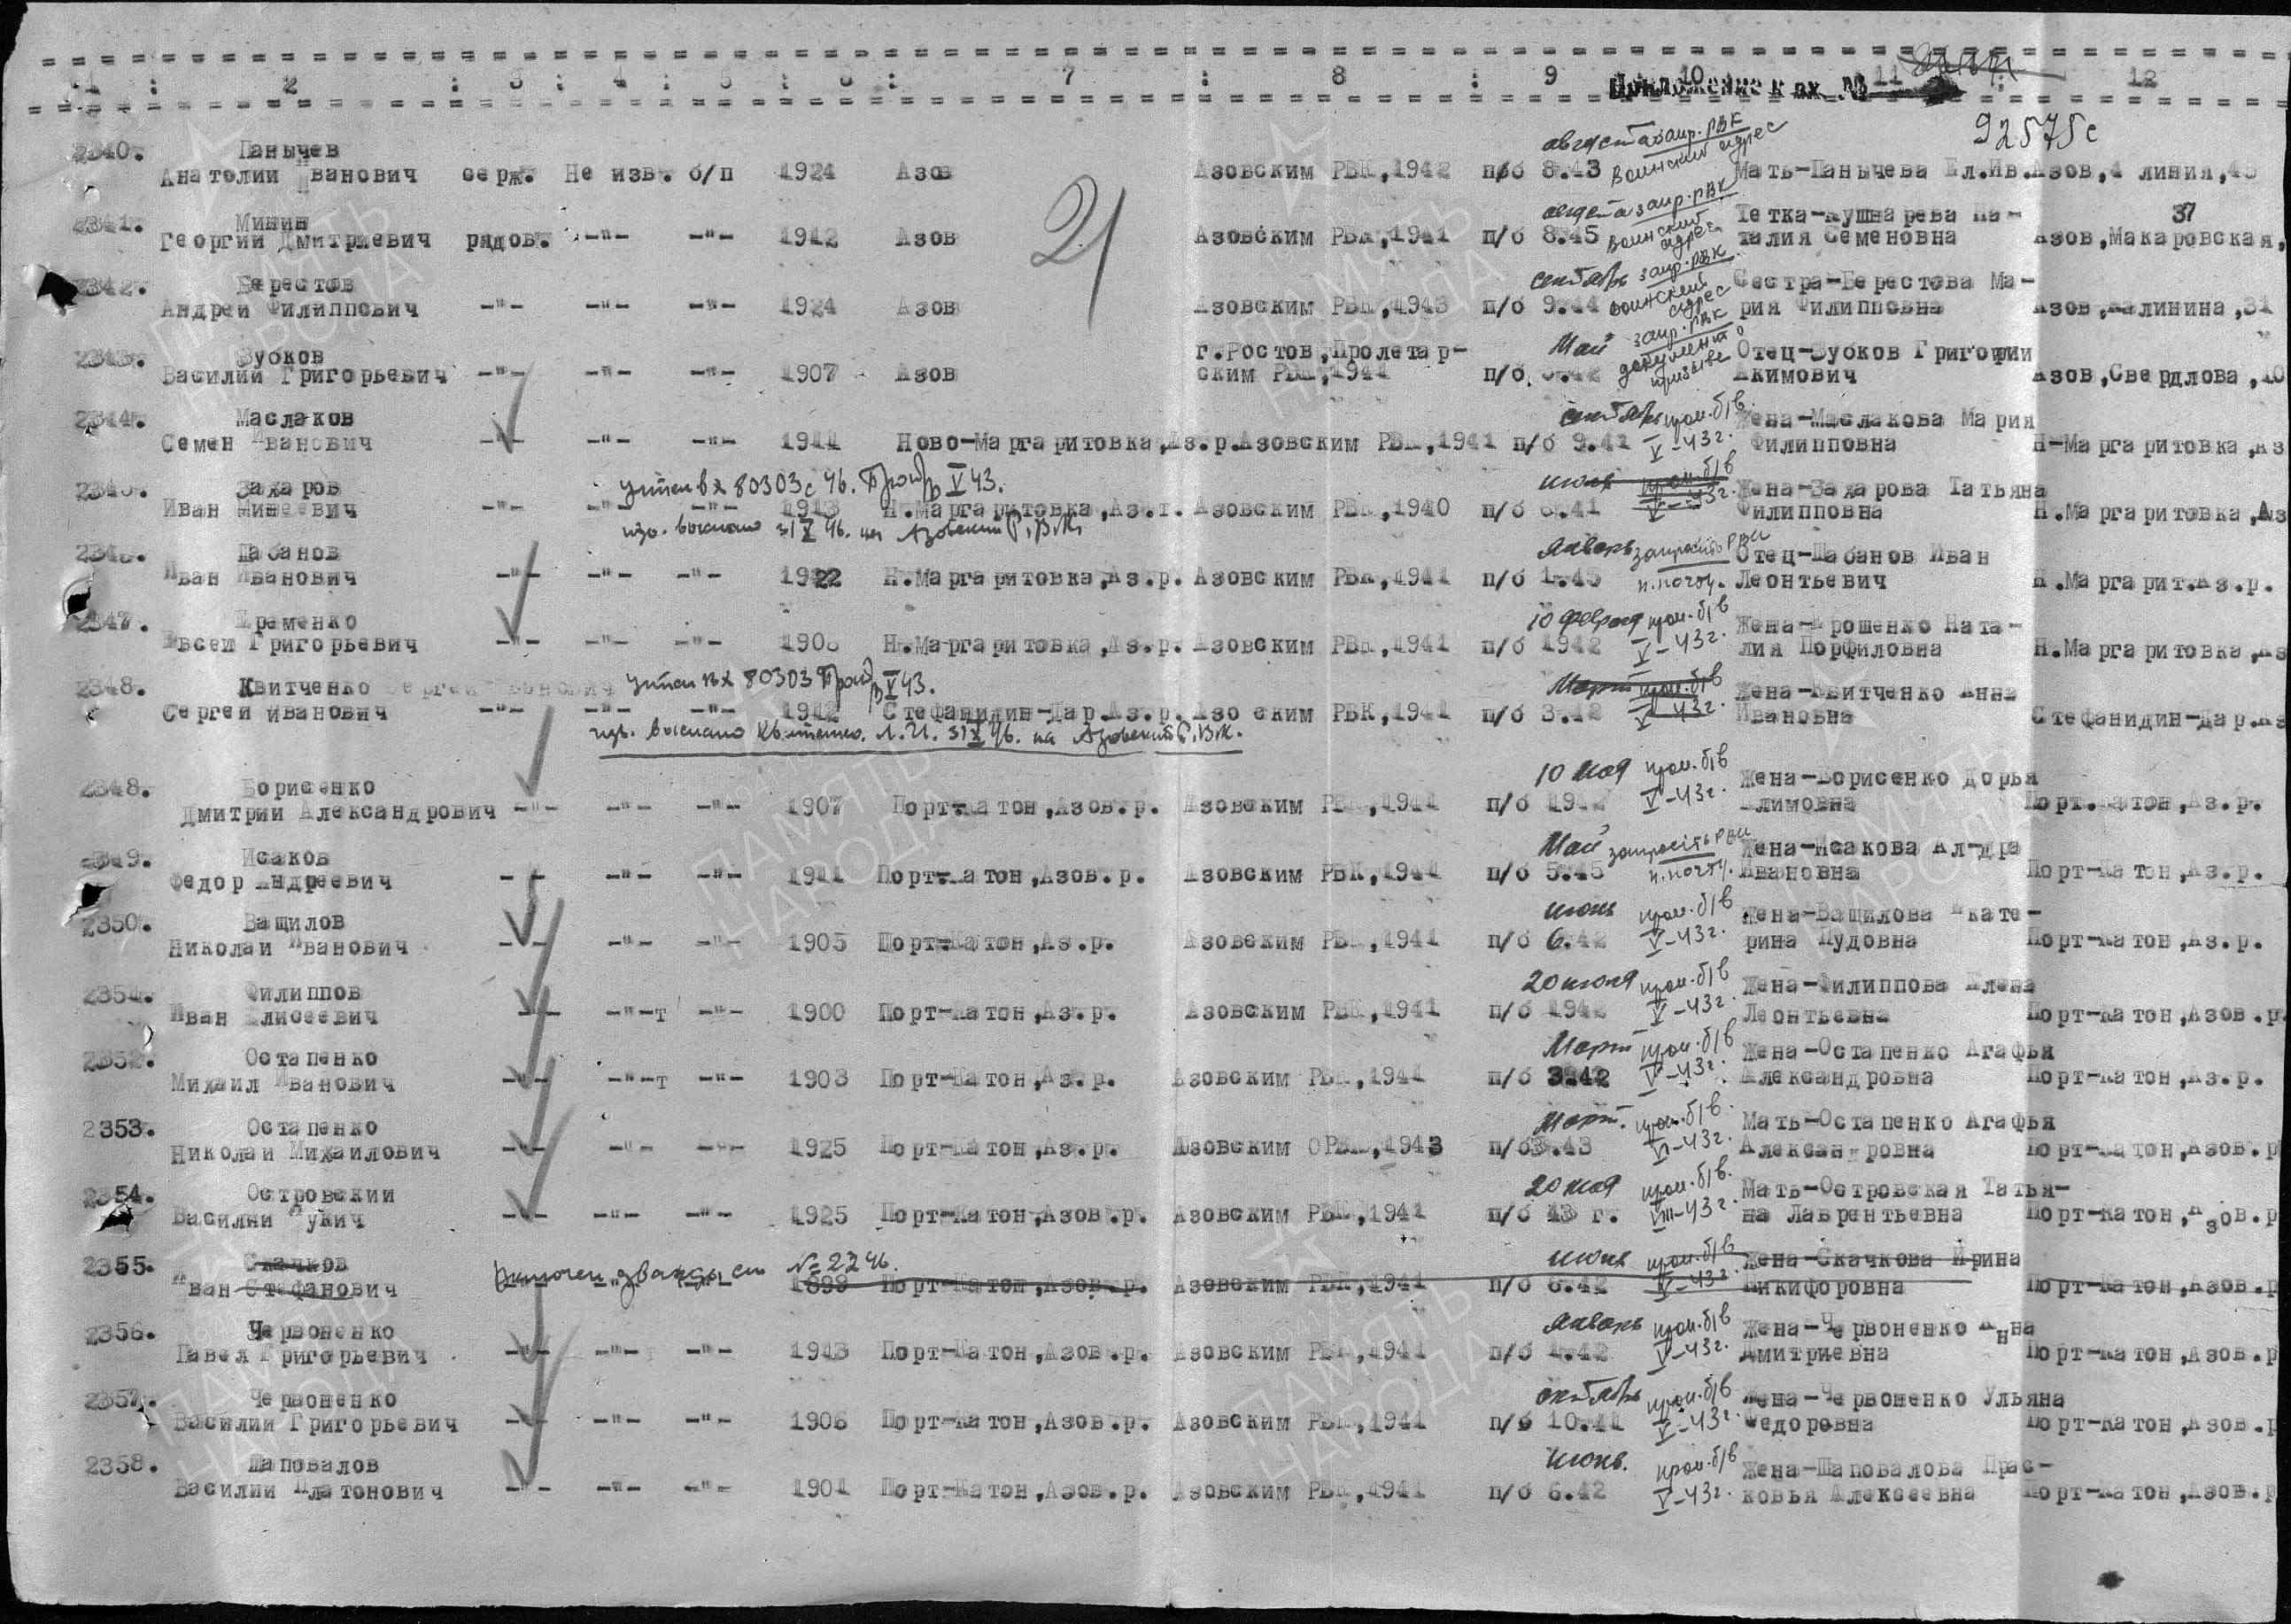 1 : 2 : 3 : 4 : 5 : 6 : 7 : 8 : 9 10 11 : 12
Приложение к вх. №
92575с
августа запр. РВК
2340. Панычев воинский адрес
Анатолий Иванович серж. Не изв. б/п 1924 Азов Азовским РВК,1942 п/б 8.43 Мать-Панычева Ел.Ив. Азов,4 линия,45
21
августа запр. РВК
2341. Минин воинский адрес Тетка-Кушнарева На- 37
Георгий Дмитриевич рядов. -"- -"- 1912 Азов Азовским РВК,1941 п/б 8.45 талия Семеновна Азов,Макаровская,
сентябрь запр. РВК
2342. Берестов воинский адрес Сестра-Берестова Ма-
Андрей Филиппович -"- -"- -"- 1924 Азов Азовским РВК,1943 п/б 9.44 рия Филипповна Азов,Калинина,31
Май запр. РВК
2343. Зубков г.Ростов,Пролетар- документ о призыве Отец-Зубков Григорий
Василий Григорьевич -"- -"- -"- 1907 Азов ским РВК,1941 п/б .42 Акимович Азов,Свердлова,10
2344. Маслаков сентябрь проп.б/в Жена-Маслакова Мария
Семен Иванович -"- -"- -"- 1911 Ново-Маргаритовка,Аз.р.Азовским РВК,1941 п/б 9.41 V-43г. Филипповна Н-Маргаритовка,Аз
учтен вх 80303с 46. Проп. в V 43.
2345. Захаров июня проп.б/в Жена-Захарова Татьяна
Иван -"- -"- -"- 1913 Н.Маргаритовка,Аз.г. Азовским РВК,1940 п/б 6.41 V-43г. Филипповна Н.Маргаритовка,Аз
изв. выслано 31 X 46. на Азовский Р.В.К.
2346. Шабанов Январь запросить РВК Отец-Шабанов Иван
Иван Иванович -"- -"- -"- 1922 Н.Маргаритовка,Аз.р. Азовским РВК,1941 п/б 1.45 п.почту. Леонтьевич Н.Маргарит.Аз.р.
2347. Еременко 10 февраля проп.б/в Жена-Ярошенко Ната-
Евсей Григорьевич -"- -"- -"- Н.Маргаритовка,Аз.р. Азовским РВК,1941 п/б 1942 V-43г. лия Порфиловна Н.Маргаритовка,Аз
учтен вх 80303 Проп. в V 43.
2348. Квитченко Март проп.б/в Жена-Квитченко Анна
Сергей Иванович -"- -"- -"- 1912 Стефанидин-Дар.Аз.р. Азовским РВК,1941 п/б 3.42 V-43г. Ивановна Стефанидин-Дар.Аз
изв. выслано Квитченко. А.И. 31 X 46. на Азовский Р.В.К.
2348. Борисенко 10 мая проп.б/в Жена-Борисенко Дорья
Дмитрий Александрович -"- -"- -"- 1907 Порт-Катон,Азов.р. Азовским РВК,1941 п/б 1942 V-43г. Климовна Порт.Катон,Аз.р.
2349. Исаков Май запросить РВК Жена-Исакова Ал-дра
Федор Андреевич -"- -"- -"- 1911 Порт-Катон,Азов.р. Азовским РВК,1941 п/б 5.45 п.почту. Ивановна Порт-Катон,Аз.р.
2350. Ващилов июнь проп.б/в Жена-Ващилова Екате-
Николай Иванович -"- -"- -"- 1905 Порт-Катон,Аз.р. Азовским РВК,1941 п/б 6.42 V-43г. рина Пудовна Порт-Катон,Аз.р.
2351. Филиппов 20 июля проп.б/в Жена-Филиппова Елена
Иван Елисеевич -"- -"-т -"- 1900 Порт-Катон,Аз.р. Азовским РВК,1941 п/б 1942 V-43г. Леонтьевна Порт-Катон,Азов.р.
2352. Остапенко Март проп.б/в Жена-Остапенко Агафья
Михаил Иванович -"- -"-т -"- 1903 Порт-Катон,Аз.р. Азовским РВК,1941 п/б 3.42 V-43г. Александровна Порт-Катон,Аз.р.
2353. Остапенко Март. проп.б/в. Мать-Остапенко Агафья
Николай Михаилович -"- -"- -"- 1925 Порт-Катон,Аз.р. Азовским ОРВК,1943 п/б3.43 VI-43г. Александровна Порт-Катон,Азов.р
2354. Островский 20 мая проп.б/в. Мать-Островская Татья-
Василий Лукич -"- -"- -"- 1925 Порт-Катон,Азов.р. Азовским РВК,1941 п/б 43 г. VIII-43г. на Лаврентьевна Порт-Катон,Азов.р
2355. Скачков включен дважды см №2246. июня проп.б/в Жена-Скачкова Ирина
Иван Стефанович -"- -"- -"- 1899 Порт-Катон,Азов.р. Азовским РВК,1941 п/б 6.42 V-43г. Никифоровна Порт-Катон,Азов.р
2356. Червоненко Январь проп.б/в Жена-Червоненко Анна
Павел Григорьевич -"- -"- -"- 1913 Порт-Катон,Азов.р. Азовским РВК,1941 п/б 1.42 V-43г. Дмитриевна Порт-Катон,Азов.р
2357. Червоненко октябрь проп.б/в Жена-Червоненко Ульяна
Василий Григорьевич -"- -"- -"- 1906 Порт-Катон,Азов.р. Азовским РВК,1941 п/б 10.41 V-43г. Федоровна Порт-Катон,Азов.р
2358. Шаповалов июнь. проп.б/в Жена-Шаповалова Прас-
Василий Платонович -"- -"- -"- 1901 Порт-Катон,Азов.р. Азовским РВК,1941 п/б 6.42 V-43г. ковья Алексеевна Порт-Катон,Азов.р